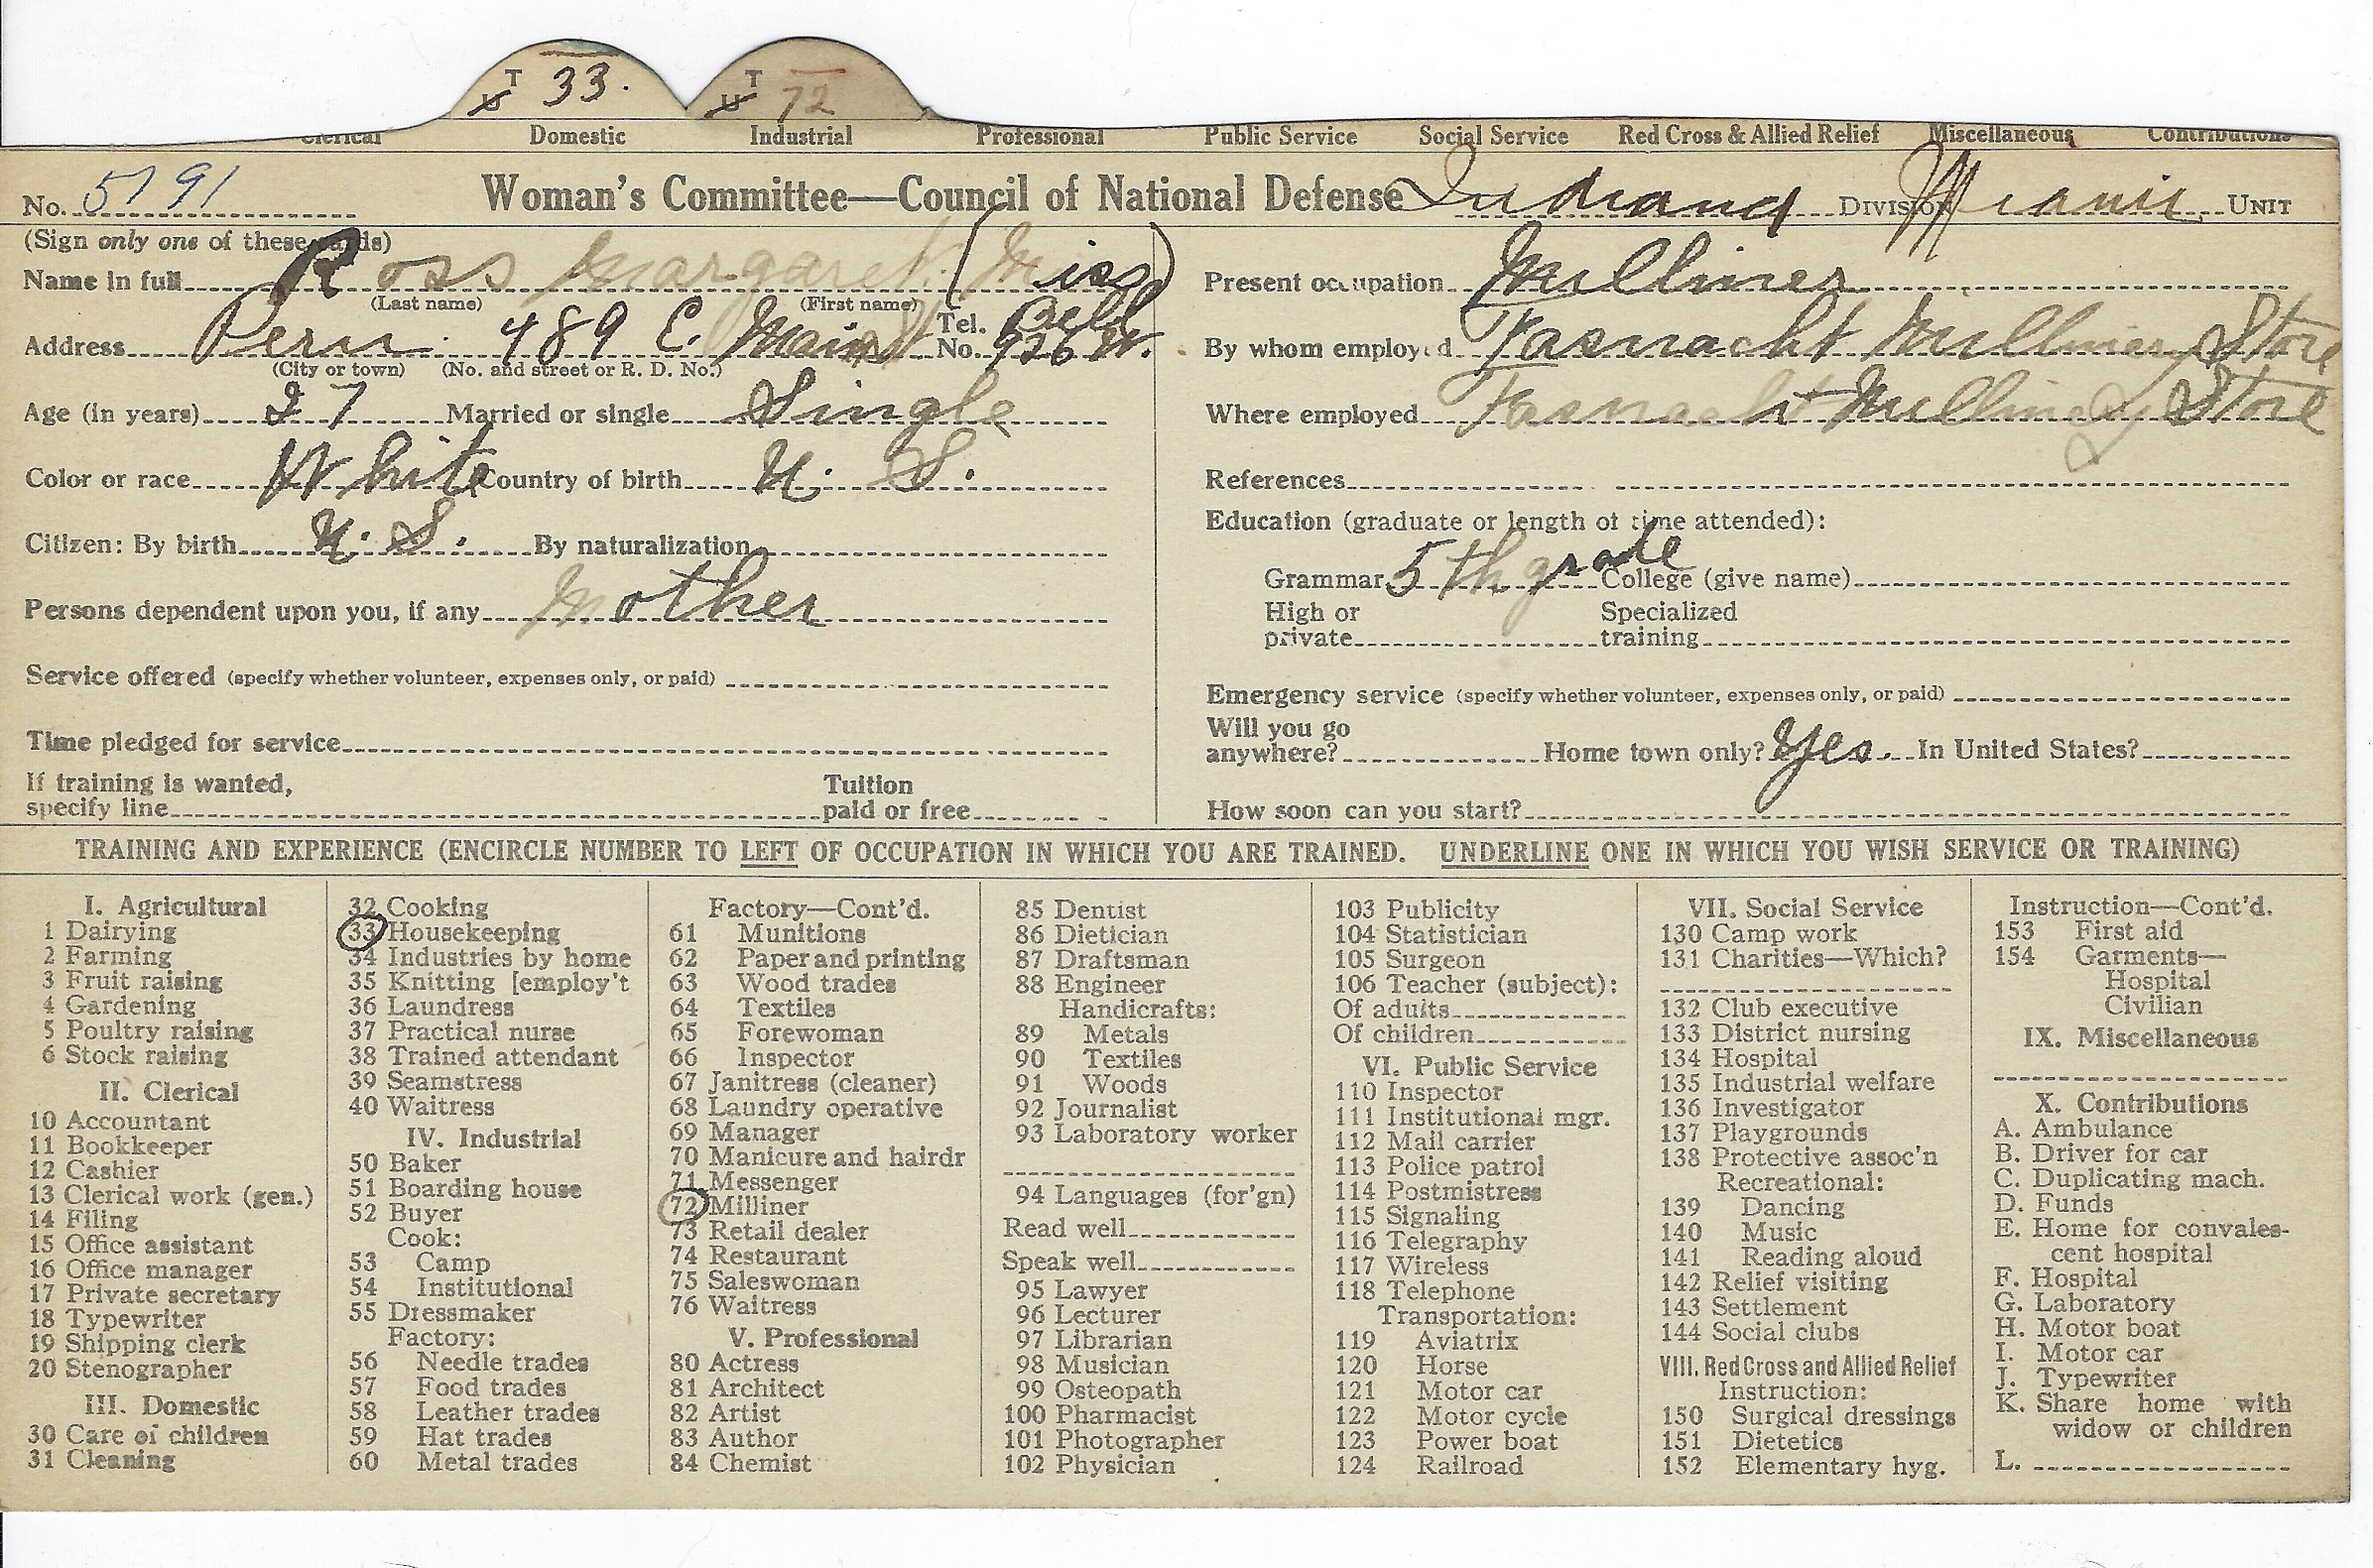 T U 33. T U 72
Clerical Domestic Industrial Professional Public Service Social Service Red Cross & Allied Relief Miscellaneous Contributions
No. 5791 Woman's Committee—Council of National Defense Indiana Division Miami Unit
(Sign only one of these cards)
Name in full Ross Margaret (Miss)
(Last name) (First name)
Address Peru 489 E. Main St Tel. No. Bell 926 W.
(City or town) (No. and street or R. D. No.)
Age (in years) 27 Married or single Single
Color or race White Country of birth U. S.
Citizen: By birth U. S. By naturalization
Persons dependent upon you, if any Mother
Service offered (specify whether volunteer, expenses only, or paid)
Time pledged for service
If training is wanted, Tuition
specify line paid or free
Present occupation Milliner
By whom employed Fasnacht Millinery Store
Where employed Fasnacht Millinery Store
References
Education (graduate or length of time attended):
Grammar 5th grade College (give name)
High or Specialized
private training
Emergency service (specify whether volunteer, expenses only, or paid)
Will you go
anywhere? Home town only? Yes. In United States?
How soon can you start?
TRAINING AND EXPERIENCE (ENCIRCLE NUMBER TO LEFT OF OCCUPATION IN WHICH YOU ARE TRAINED. UNDERLINE ONE IN WHICH YOU WISH SERVICE OR TRAINING)
I. Agricultural
1 Dairying
2 Farming
3 Fruit raising
4 Gardening
5 Poultry raising
6 Stock raising
II. Clerical
10 Accountant
11 Bookkeeper
12 Cashier
13 Clerical work (gen.)
14 Filing
15 Office assistant
16 Office manager
17 Private secretary
18 Typewriter
19 Shipping clerk
20 Stenographer
III. Domestic
30 Care of children
31 Cleaning
32 Cooking
33 Housekeeping
34 Industries by home
35 Knitting [employ't
36 Laundress
37 Practical nurse
38 Trained attendant
39 Seamstress
40 Waitress
IV. Industrial
50 Baker
51 Boarding house
52 Buyer
Cook:
53 Camp
54 Institutional
55 Dressmaker
Factory:
56 Needle trades
57 Food trades
58 Leather trades
59 Hat trades
60 Metal trades
Factory—Cont'd.
61 Munitions
62 Paper and printing
63 Wood trades
64 Textiles
65 Forewoman
66 Inspector
67 Janitress (cleaner)
68 Laundry operative
69 Manager
70 Manicure and hairdr
71 Messenger
72 Milliner
73 Retail dealer
74 Restaurant
75 Saleswoman
76 Waitress
V. Professional
80 Actress
81 Architect
82 Artist
83 Author
84 Chemist
85 Dentist
86 Dietician
87 Draftsman
88 Engineer
Handicrafts:
89 Metals
90 Textiles
91 Woods
92 Journalist
93 Laboratory worker
94 Languages (for'gn)
Read well
Speak well
95 Lawyer
96 Lecturer
97 Librarian
98 Musician
99 Osteopath
100 Pharmacist
101 Photographer
102 Physician
103 Publicity
104 Statistician
105 Surgeon
106 Teacher (subject):
Of adults
Of children
VI. Public Service
110 Inspector
111 Institutional mgr.
112 Mail carrier
113 Police patrol
114 Postmistress
115 Signaling
116 Telegraphy
117 Wireless
118 Telephone
Transportation:
119 Aviatrix
120 Horse
121 Motor car
122 Motor cycle
123 Power boat
124 Railroad
VII. Social Service
130 Camp work
131 Charities—Which?
132 Club executive
133 District nursing
134 Hospital
135 Industrial welfare
136 Investigator
137 Playgrounds
138 Protective assoc'n
Recreational:
139 Dancing
140 Music
141 Reading aloud
142 Relief visiting
143 Settlement
144 Social clubs
VIII. Red Cross and Allied Relief
Instruction:
150 Surgical dressings
151 Dietetics
152 Elementary hyg.
Instruction—Cont'd.
153 First aid
154 Garments—
Hospital
Civilian
IX. Miscellaneous
X. Contributions
A. Ambulance
B. Driver for car
C. Duplicating mach.
D. Funds
E. Home for convales-
cent hospital
F. Hospital
G. Laboratory
H. Motor boat
I. Motor car
J. Typewriter
K. Share home with
widow or children
L.